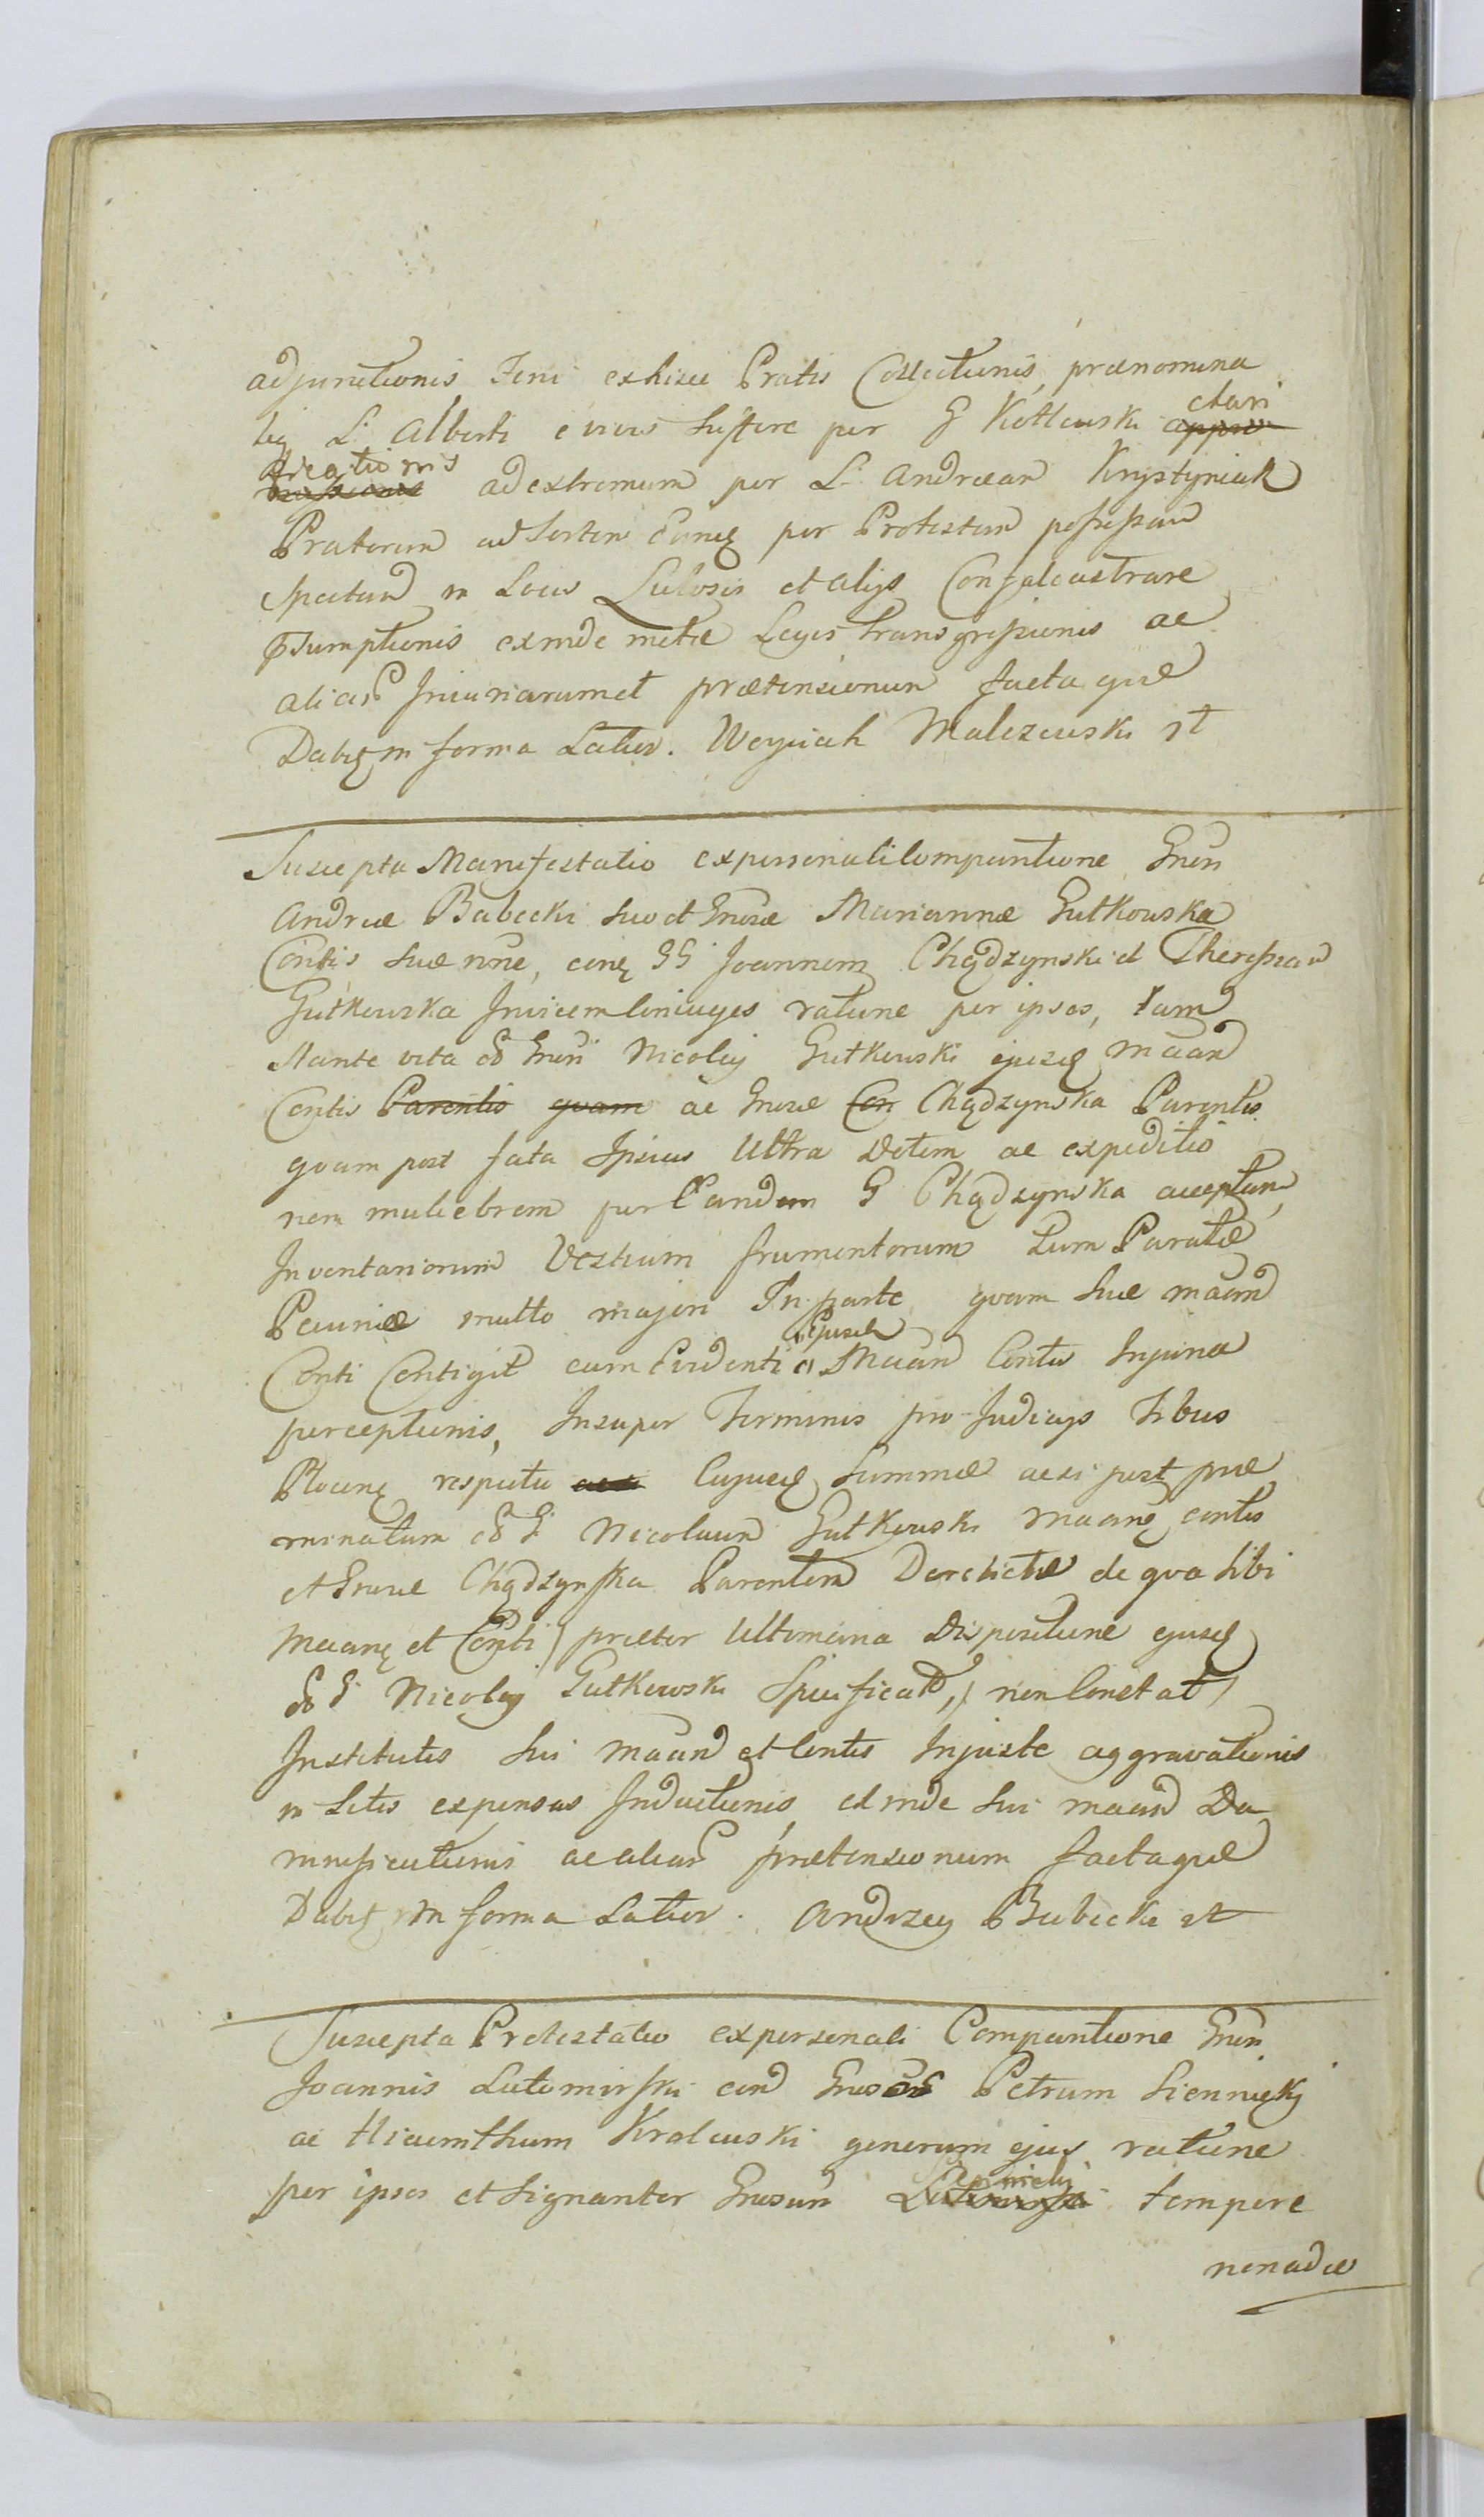 adjunctionis, Feni exhisce Pratis Collectionis, prænomina
L: Alberti Suffere per G Kotlewski ctari
dicationis ad extremum per L: Andream Krystyniak
Pratorum ad Sortem per Protestan possessam
Spectan in Locis Lutosis et alijs
sumptionis exinde metæ Legis transgressionis ac
aliar Iniuriarumet prætensionum facta quæ
Dabit in forma Latior. Woyciah Malczewski st
Suscepta Manifestatio expersonalicomparitione Gnen
Andreæ Babecki suo et Gnosæ Mariannæ Gutkowska
Contis suæ nne, conę GG Joannem Chądzynski et Theressiam
Gutkowska Invicem Coniuges ratione per ipsos, tam
stante vita Gnen Nicolaj Gutkowski ejusq maan
Contis Parentis quam ac Gnosæ Con Chądzynska Parentis
quam post fata Ipsius Ultra Dotem ac expeditio
nem muliebrem per Eandem G Chądzynska acceptam,
Inventariorum Vestium frumentorum tum Paratæ
Pecuniæ multo majori In parte quam suæ maan
Conti Contigit cum Evidenti Ejusd Maan Contis Injuria
perceptionis, Insuper Terminis pro Judicijs Tribus
Plocen respectu Cujusq Summæ acsi post præ
minatum G: Nicolaum Gutkowski maanę contis
et Gnosæ Chądzynska Parentem Derelictæ de qua sibi
Maanę et Conti) præter Ultimaria Dispositione ejusq
G: Nicolaj Gutkowski Specificat,) non Constat)
Institutis sui maan et Contis Injuste aggravationis
in Litis expensas Inductionis, et inde sui maan Da
mnificationis ac aliar prætensionum facta quæ
Dabit in forma Latior. Andrzey Babecki st
Suscepta Protestatio expersonali Comparitione Gnen
Joannis Lutomirski con Gnosos Petrum Siennicki
ac Hiacinthum Kralewski generum ejus ratione
per ipsos et signanter Gnosum tempore
nonadeo